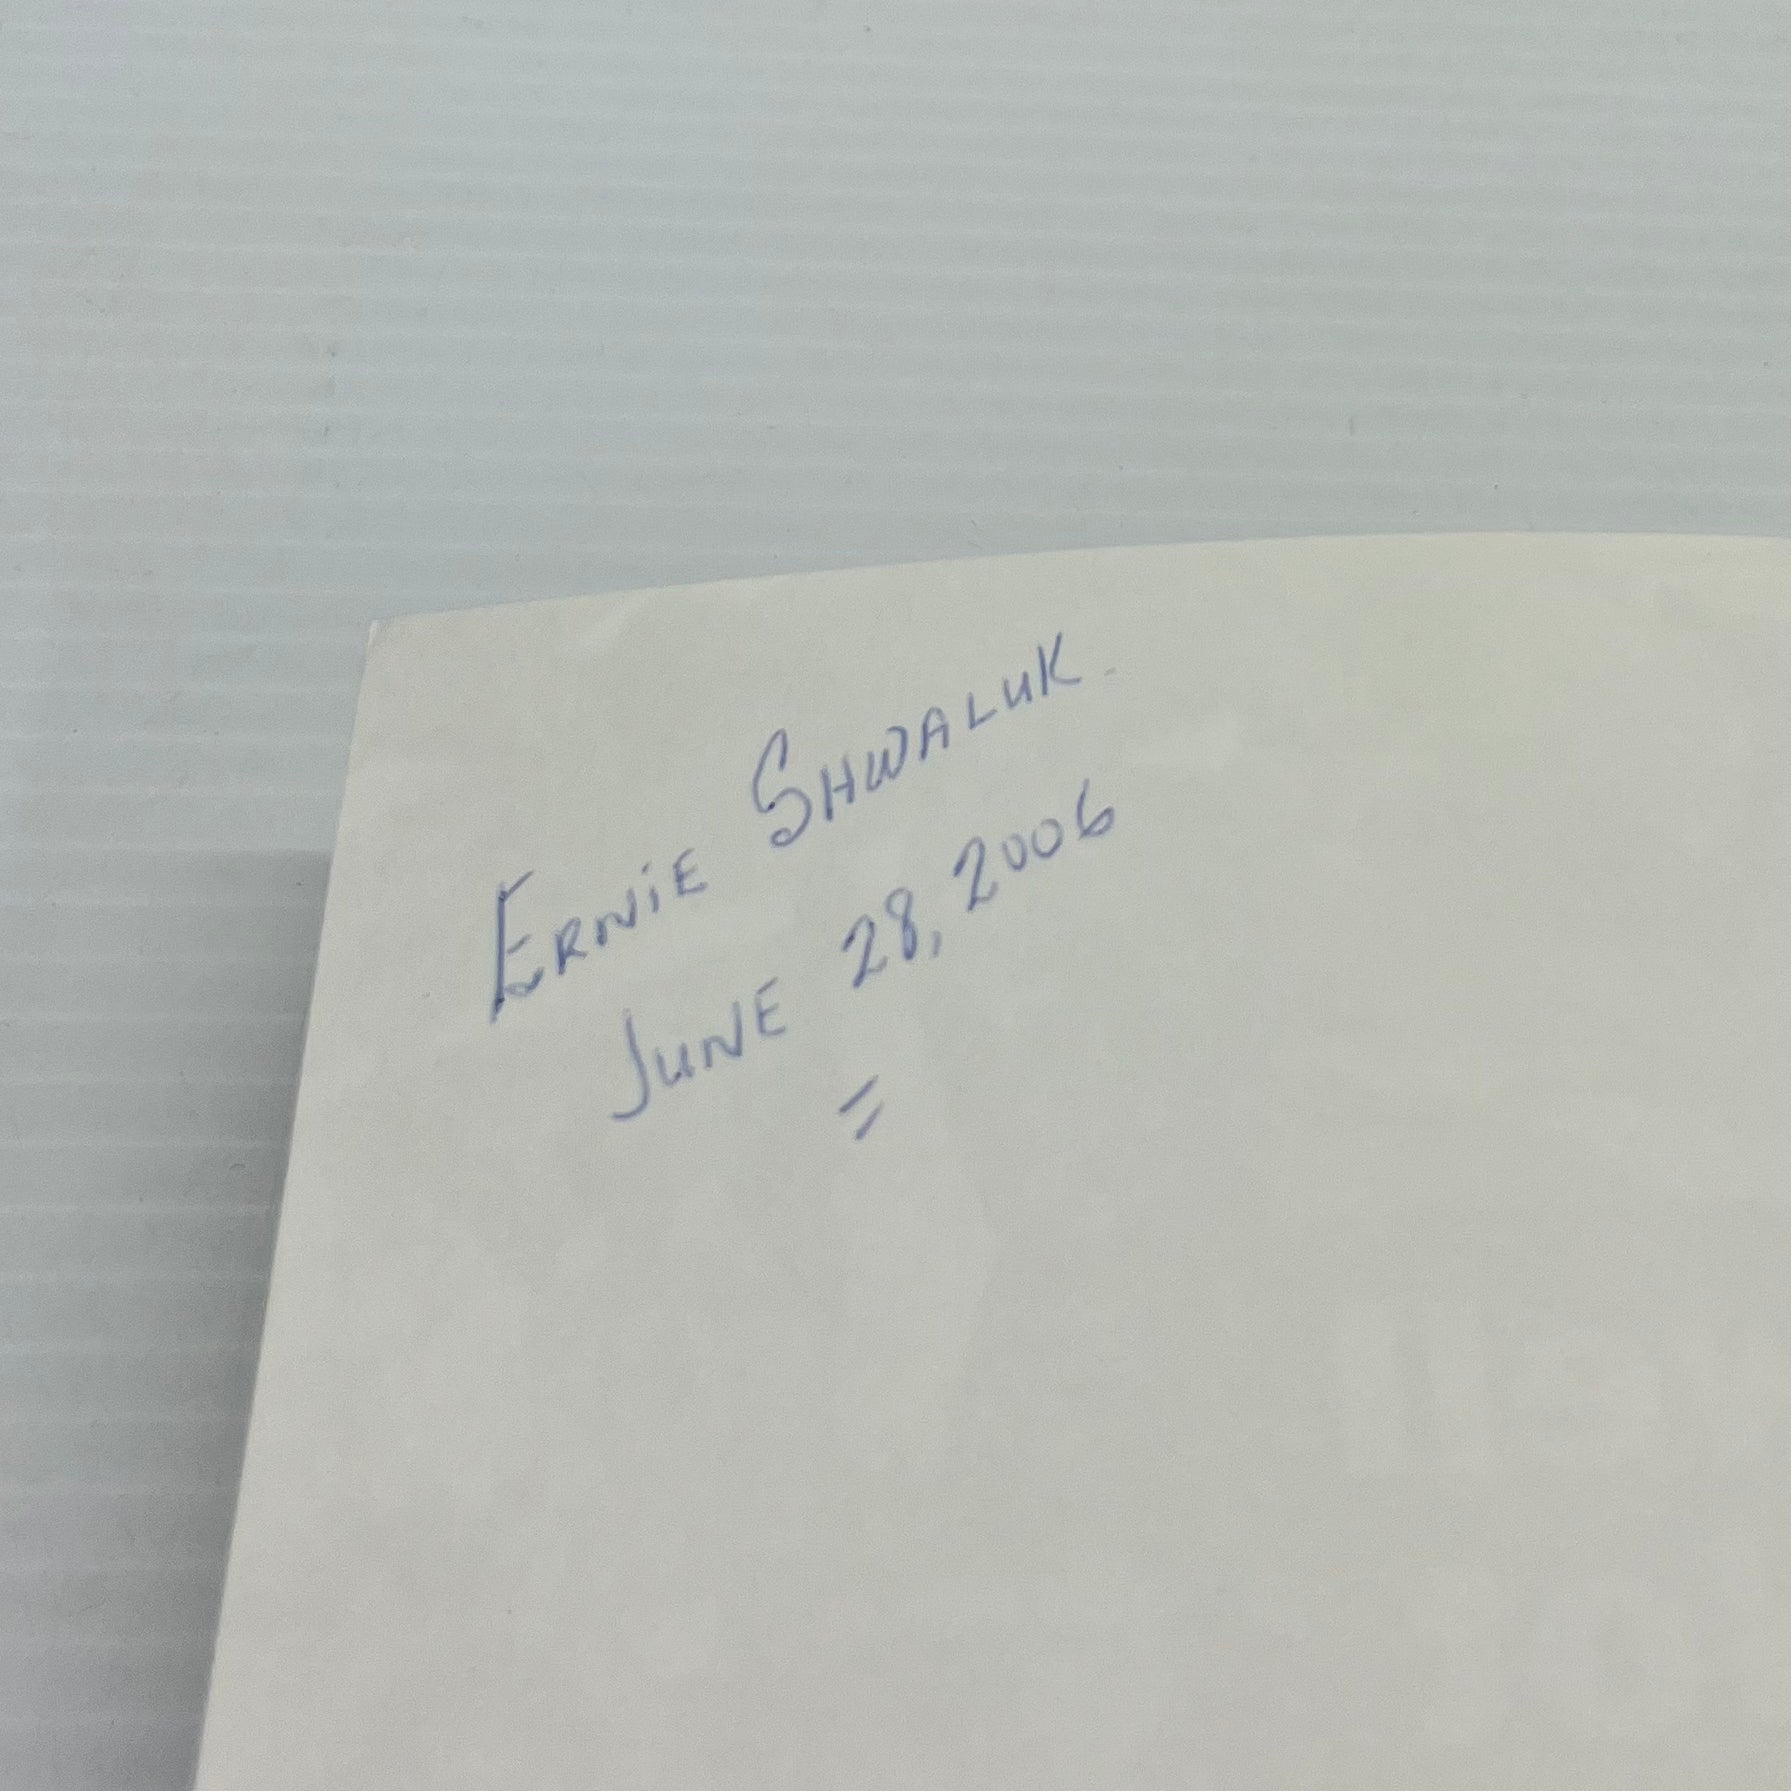 ERNiE SHWALUK
JUNE 28, 2006
=